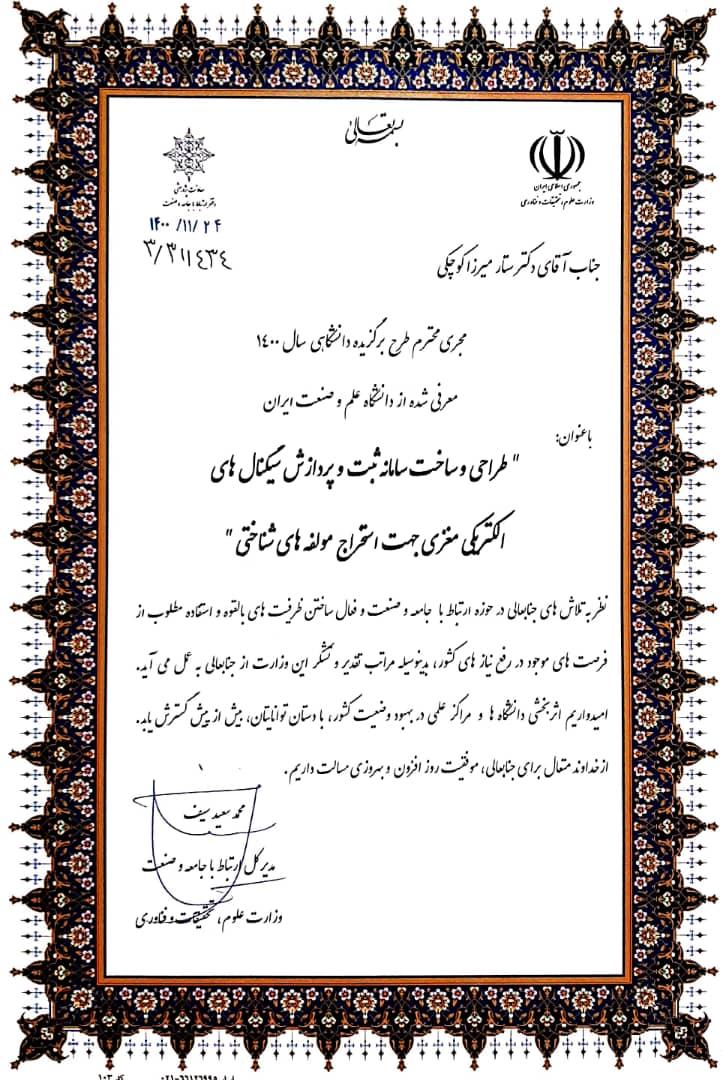 بسمه تعالی
جمهوری اسلامی ایران
وزارت علوم، تحقیقات و فناوری
معاونت پژوهشی
دفتر ارتباط با جامعه و صنعت
۱۴۰۰/۱۱/۲۴
۳/۳۱۱۴۳۴
جناب آقای دکتر ستار میرزاکوچکی
مجری محترم طرح برگزیده دانشگاهی سال ۱۴۰۰
معرفی شده از دانشگاه علم و صنعت ایران
با عنوان:
" طراحی و ساخت سامانه ثبت و پردازش سیگنال های
الکتریکی مغزی جهت استخراج مولفه های شناختی "
نظر به تلاش های جنابعالی در حوزه ارتباط با جامعه و صنعت و فعال ساختن ظرفیت های بالقوه و استفاده مطلوب از
فرصت های موجود در رفع نیاز های کشور، بدینوسیله مراتب تقدیر و تشکر این وزارت از جنابعالی به عمل می آید.
امیدواریم اثربخشی دانشگاه ها و مراکز علمی در بهبود وضعیت کشور، با دستان توانایتان، بیش از پیش گسترش یابد.
از خداوند متعال برای جنابعالی، موفقیت روز افزون و بهروزی مسالت داریم.
محمد سعید سیف
مدیر کل ارتباط با جامعه و صنعت
وزارت علوم، تحقیقات و فناوری